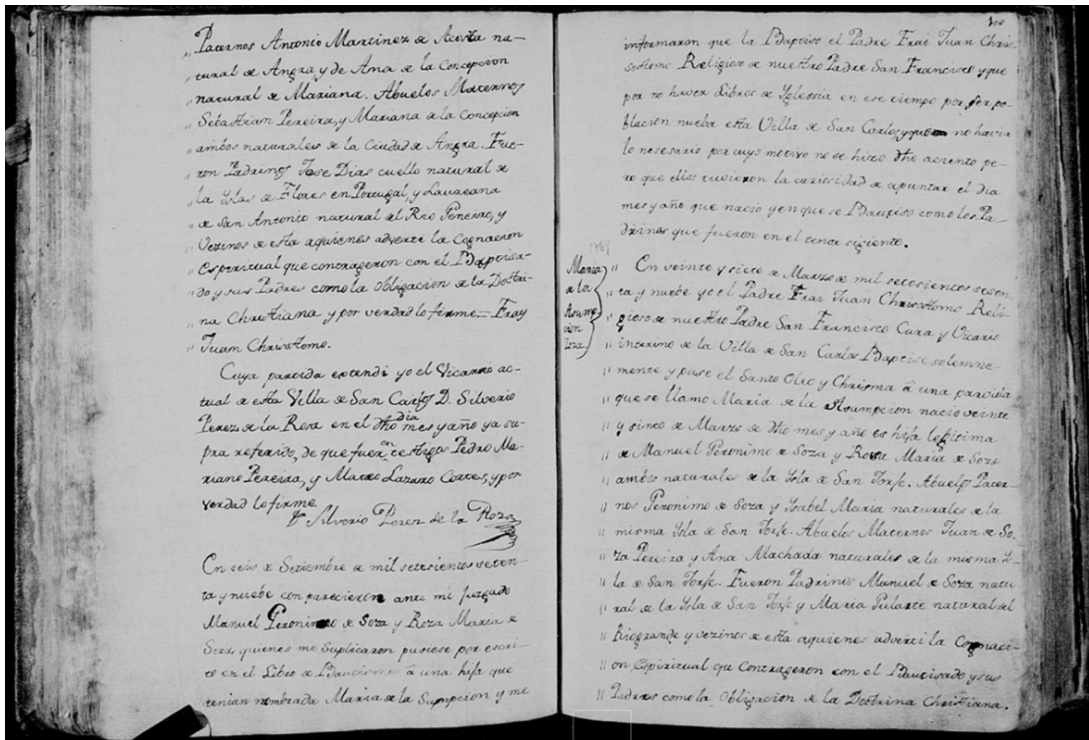 Paternos Antonio Martinez de Acosta na-
„ tural de Angra, y de Ana de la Concepcion
„ natural de Mariana. Abuelos Maternos
„ Sebastian Pereira, y Mariana de la Concepcion
„ ambos naturales de la Ciudad de Angra. Fue-
„ ron Padrinos Jose Dias cuello natural de
„ la Yslas de Flores en Portugal, y Laureana
„ de San Antonio natural del Rio Genero, y
„ Vezinos de esta aquienes adverti la Cognacion
„ Espiritual que contrageron con el Baptisa-
„ do y sus Padres como la obligacion de la Doctri-
„ na Christiana y por verdad lo firme — Fray
„ Juan Christostomo.
Cuya partida extendi yo el Vicario ac-
tual de esta Villa de San Carlos D. Silverio
Perez de la Rosa en el dho dia mes y año ya su-
pra referido, de que fueron testigos Pedro Ma-
riano Pereira, y Mateo Lazaro Cortes, y por
verdad lo firme
Silverio Perez de la Roza
En seis de Setiembre de mil setesientos seten-
ta y nuebe comparecieron ante mi juzgado
Manuel Geronimo de Soza y Roza Maria de
Soza quienes me Suplicaron pusiese por escri-
to en el Libro de Bautismo â una hija que
tenian nombrada Maria de la Sumpcion y me
informaron que la Baptiso el Padre Frai Juan Chris-
ostomo Religioso de nuestro Padre San Francisco y que
por no haver Libros de Yglessia en ese tiempo por ser po-
blacion nueba esta Villa de San Carlos, y que no havia
lo nesesario por cuyo motivo no se hizo dho aciento pe-
ro que ellos tuvieron la curiosidad de apuntar el dia
mes y año que nacio y en que se Bautiso como los Pa-
drinos que fueron en el tenor siguiente.
1769
Maria
de la
Asump-
cion
Soza
„ En veinte y siete de Marzo de mil setecientos sesen-
„ ta y nuebe yo el Padre Frai Juan Christostomo Reli-
„ gioso de nuestro Padre San Francisco Cura y Vicario
„ interino de la Villa de San Carlos Baptise solemne-
„ mente y puse el Santo Olio y Chrisma â una parvula
„ que se llamo Maria de la Asumpcion nacio veinte
„ y sinco de Marzo de dho mes y año es hija lexitima
„ de Manuel Geronimo de Soza y Rosa Maria de Soza
„ ambos naturales de la Ysla de San Jorje. Abuelos Pater-
„ nos Geronimo de Soza y Ysabel Maria naturales de la
„ misma Ysla de San Jorje. Abuelos Maternos Juan de So-
„ za Pereira y Ana Machada naturales de la misma Ys-
„ la de San Jorje. Fueron Padrinos Manuel de Soza natu-
„ ral de la Ysla de San Jorje y Maria Pularte natural del
„ Riogrande y vezinos de esta aquienes adverti la Cognaci-
„ on Espiritual que Contrageron con el Bautisado y sus
„ Padres como la Obligacion de la Doctrina Christiana.